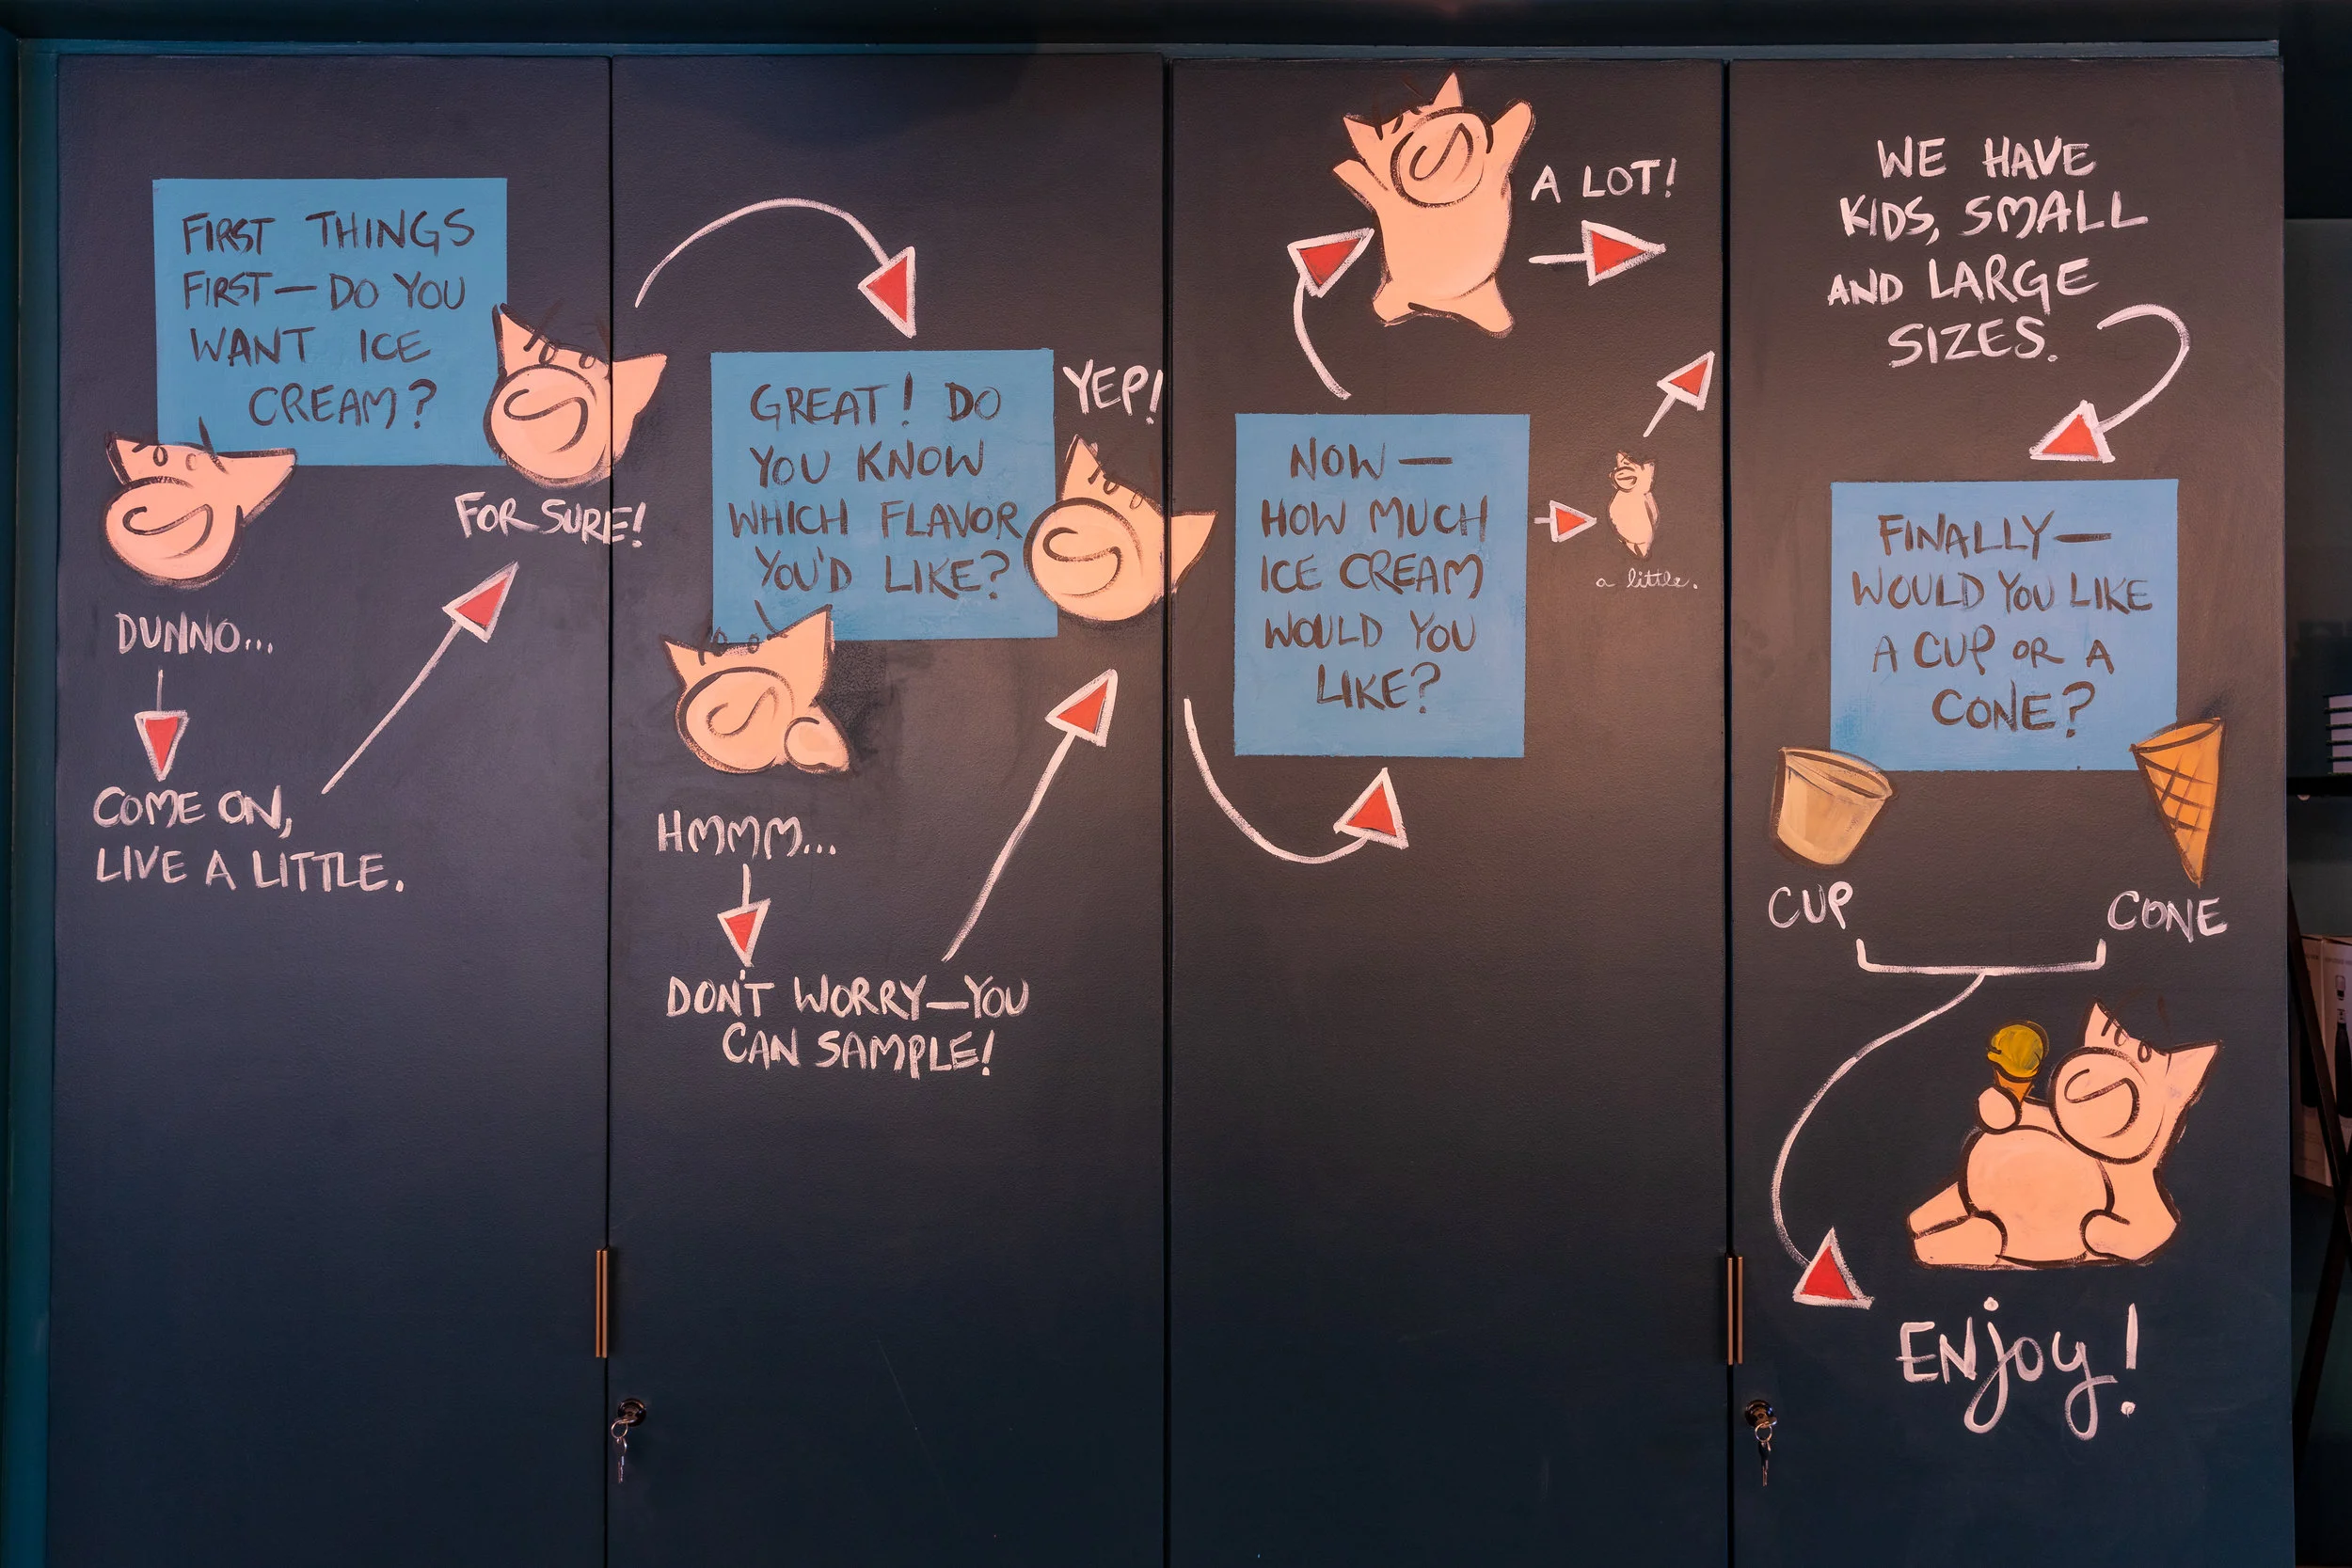 FIRST THINGS
FIRST — DO YOU
WANT ICE
CREAM?
DUNNO...
COME ON,
LIVE A LITTLE.
FOR SURE!
GREAT! DO
YOU KNOW
WHICH FLAVOR
YOU'D LIKE?
HMMM...
DON'T WORRY—YOU
CAN SAMPLE!
YEP!
NOW —
HOW MUCH
ICE CREAM
WOULD YOU
LIKE?
A LOT!
a little.
WE HAVE
KIDS, SMALL
AND LARGE
SIZES.
FINALLY —
WOULD YOU LIKE
A CUP OR A
CONE?
CUP
CONE
ENjoy!